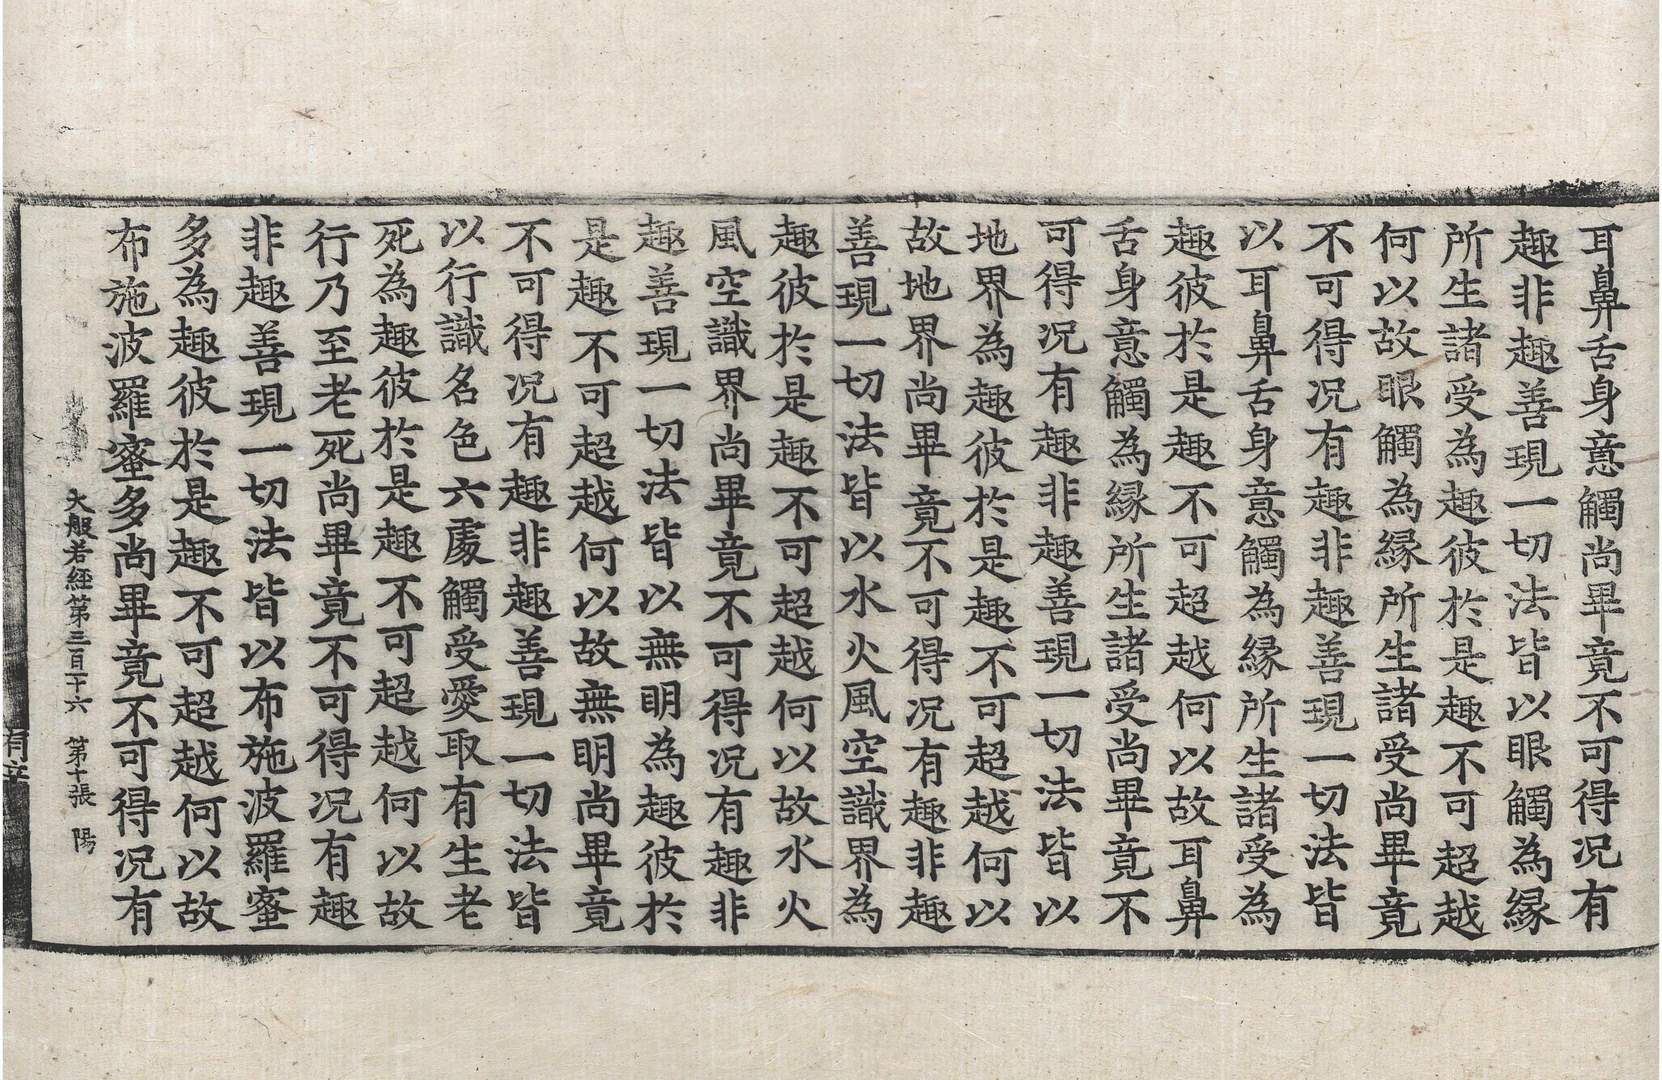 耳鼻舌身意觸尚畢竟不可得况有
趣非趣善現一切法皆以眼觸為縁
所生諸受為趣彼於是趣不可超越
何以故眼觸為縁所生諸受尚畢竟
不可得况有趣非趣善現一切法皆
以耳鼻舌身意觸為縁所生諸受為
趣彼於是趣不可超越何以故耳鼻
舌身意觸為縁所生諸受尚畢竟不
可得况有趣非趣善現一切法皆以
地界為趣彼於是趣不可超越何以
故地界尚畢竟不可得况有趣非趣
善現一切法皆以水火風空識界為
趣彼於是趣不可超越何以故水火
風空識界尚畢竟不可得况有趣非
趣善現一切法皆以無明為趣彼於
是趣不可超越何以故無明尚畢竟
不可得况有趣非趣善現一切法皆
以行識名色六處觸受愛取有生老
死為趣彼於是趣不可超越何以故
行乃至老死尚畢竟不可得况有趣
非趣善現一切法皆以布施波羅蜜
多為趣彼於是趣不可超越何以故
布施波羅蜜多尚畢竟不可得况有
大般若經第三百十六 第十張 陽